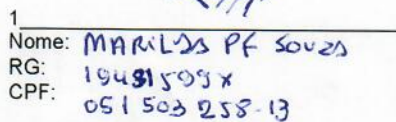 1
Nome: MARILDA PF SOUZA
RG: 19431599X
CPF: 051 503 258-13